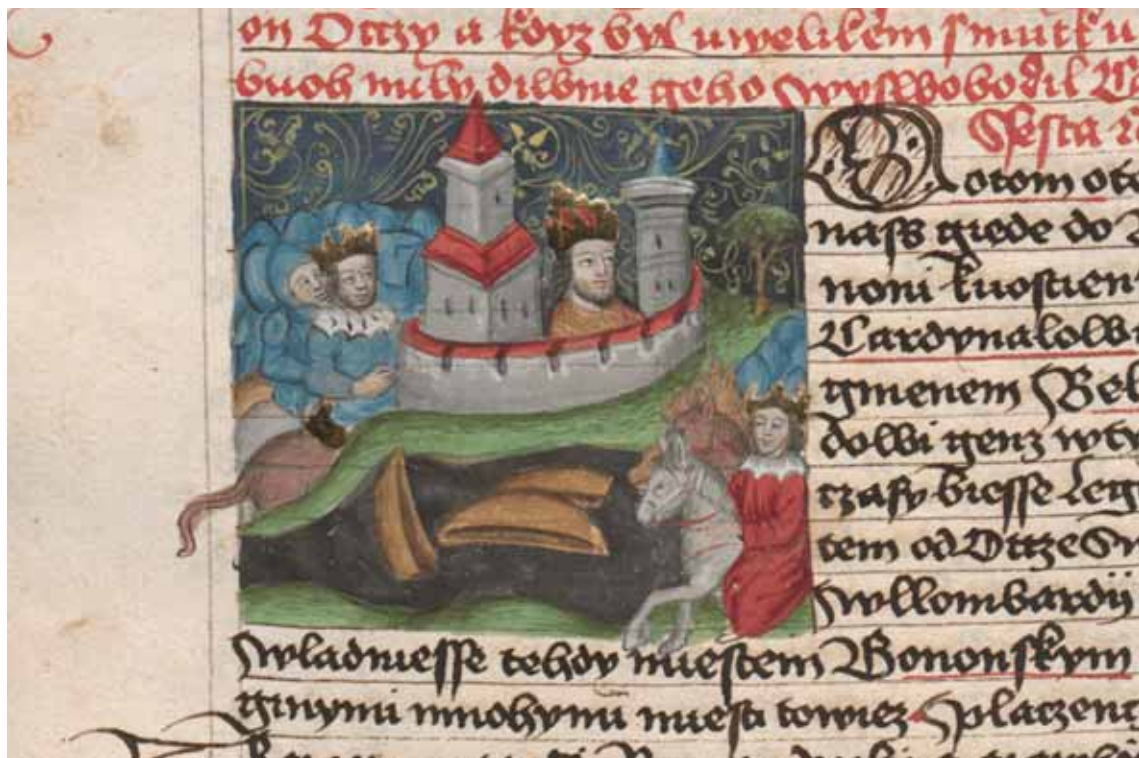 on Ottzy a kdyz byl uwelikem smutku
buoh mily diwnie geho wyswobodil
Ssesta
Potom ote
nass giede do
noni kuostien
Cardynalowi
gmenem Bel
dowi genz wty
czasy biesse leg
tem od Ottze Sw
wllombardij
wladniesse tehdy miestem Bononskym
ginymi mnohymi miesti towiez Splaczenc